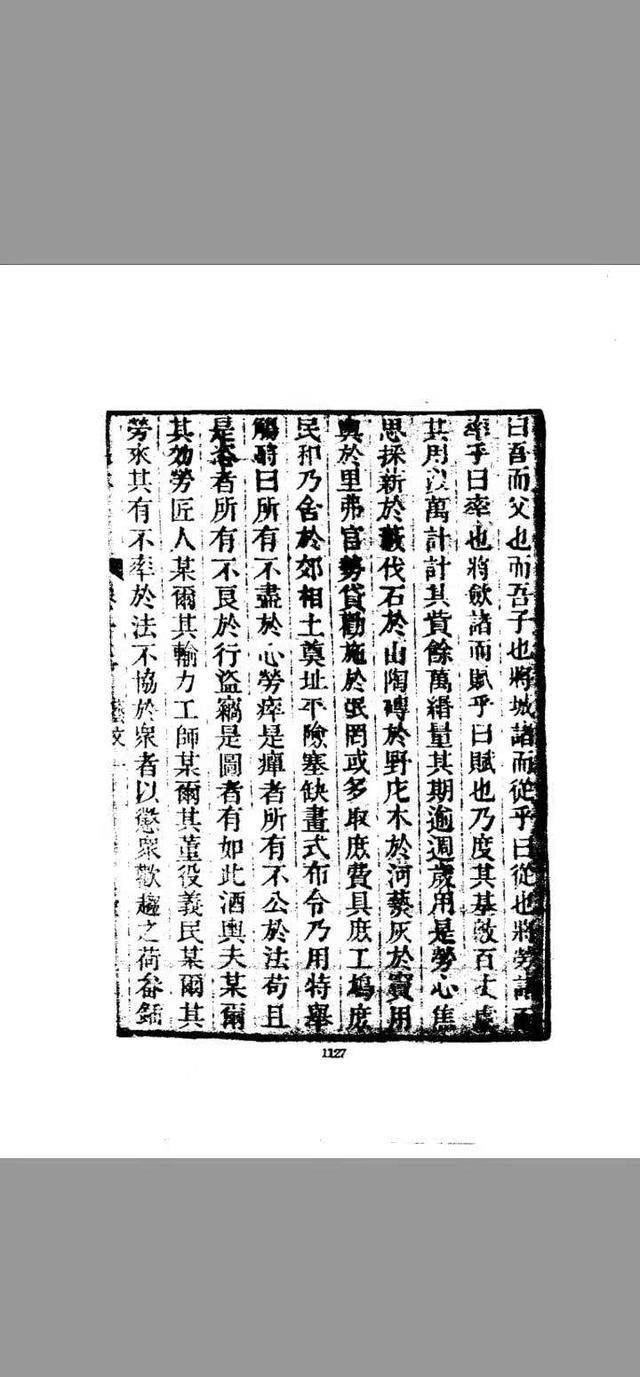 曰吾而父也而吾子也將城諸而從乎曰從也將勞諸而
率乎曰率也將斂諸而賦乎曰賦也乃度其基數百丈慮
其用以萬計計其貲餘萬緡量其期逾週歲用是勞心焦
思採薪於藪伐石於山陶磚於野庀木於河爇灰於竇用
輿於里弗官勢貸勸施於張罔或多取庶費具庶工鳩庶
民和乃舍於郊相土奠址平險塞缺畫式布令乃用特舉
觴酹曰所有不盡於心勞瘁是癉者所有不公於法苟且
是者所有不良於行盜竊是圖者有如此酒輿夫某爾
其効勞匠人某爾其輸力工師某爾其董役義民某爾其
勞來其有不率於法不協於衆者以懲衆歡趨之荷畚鍤
藝文
1127